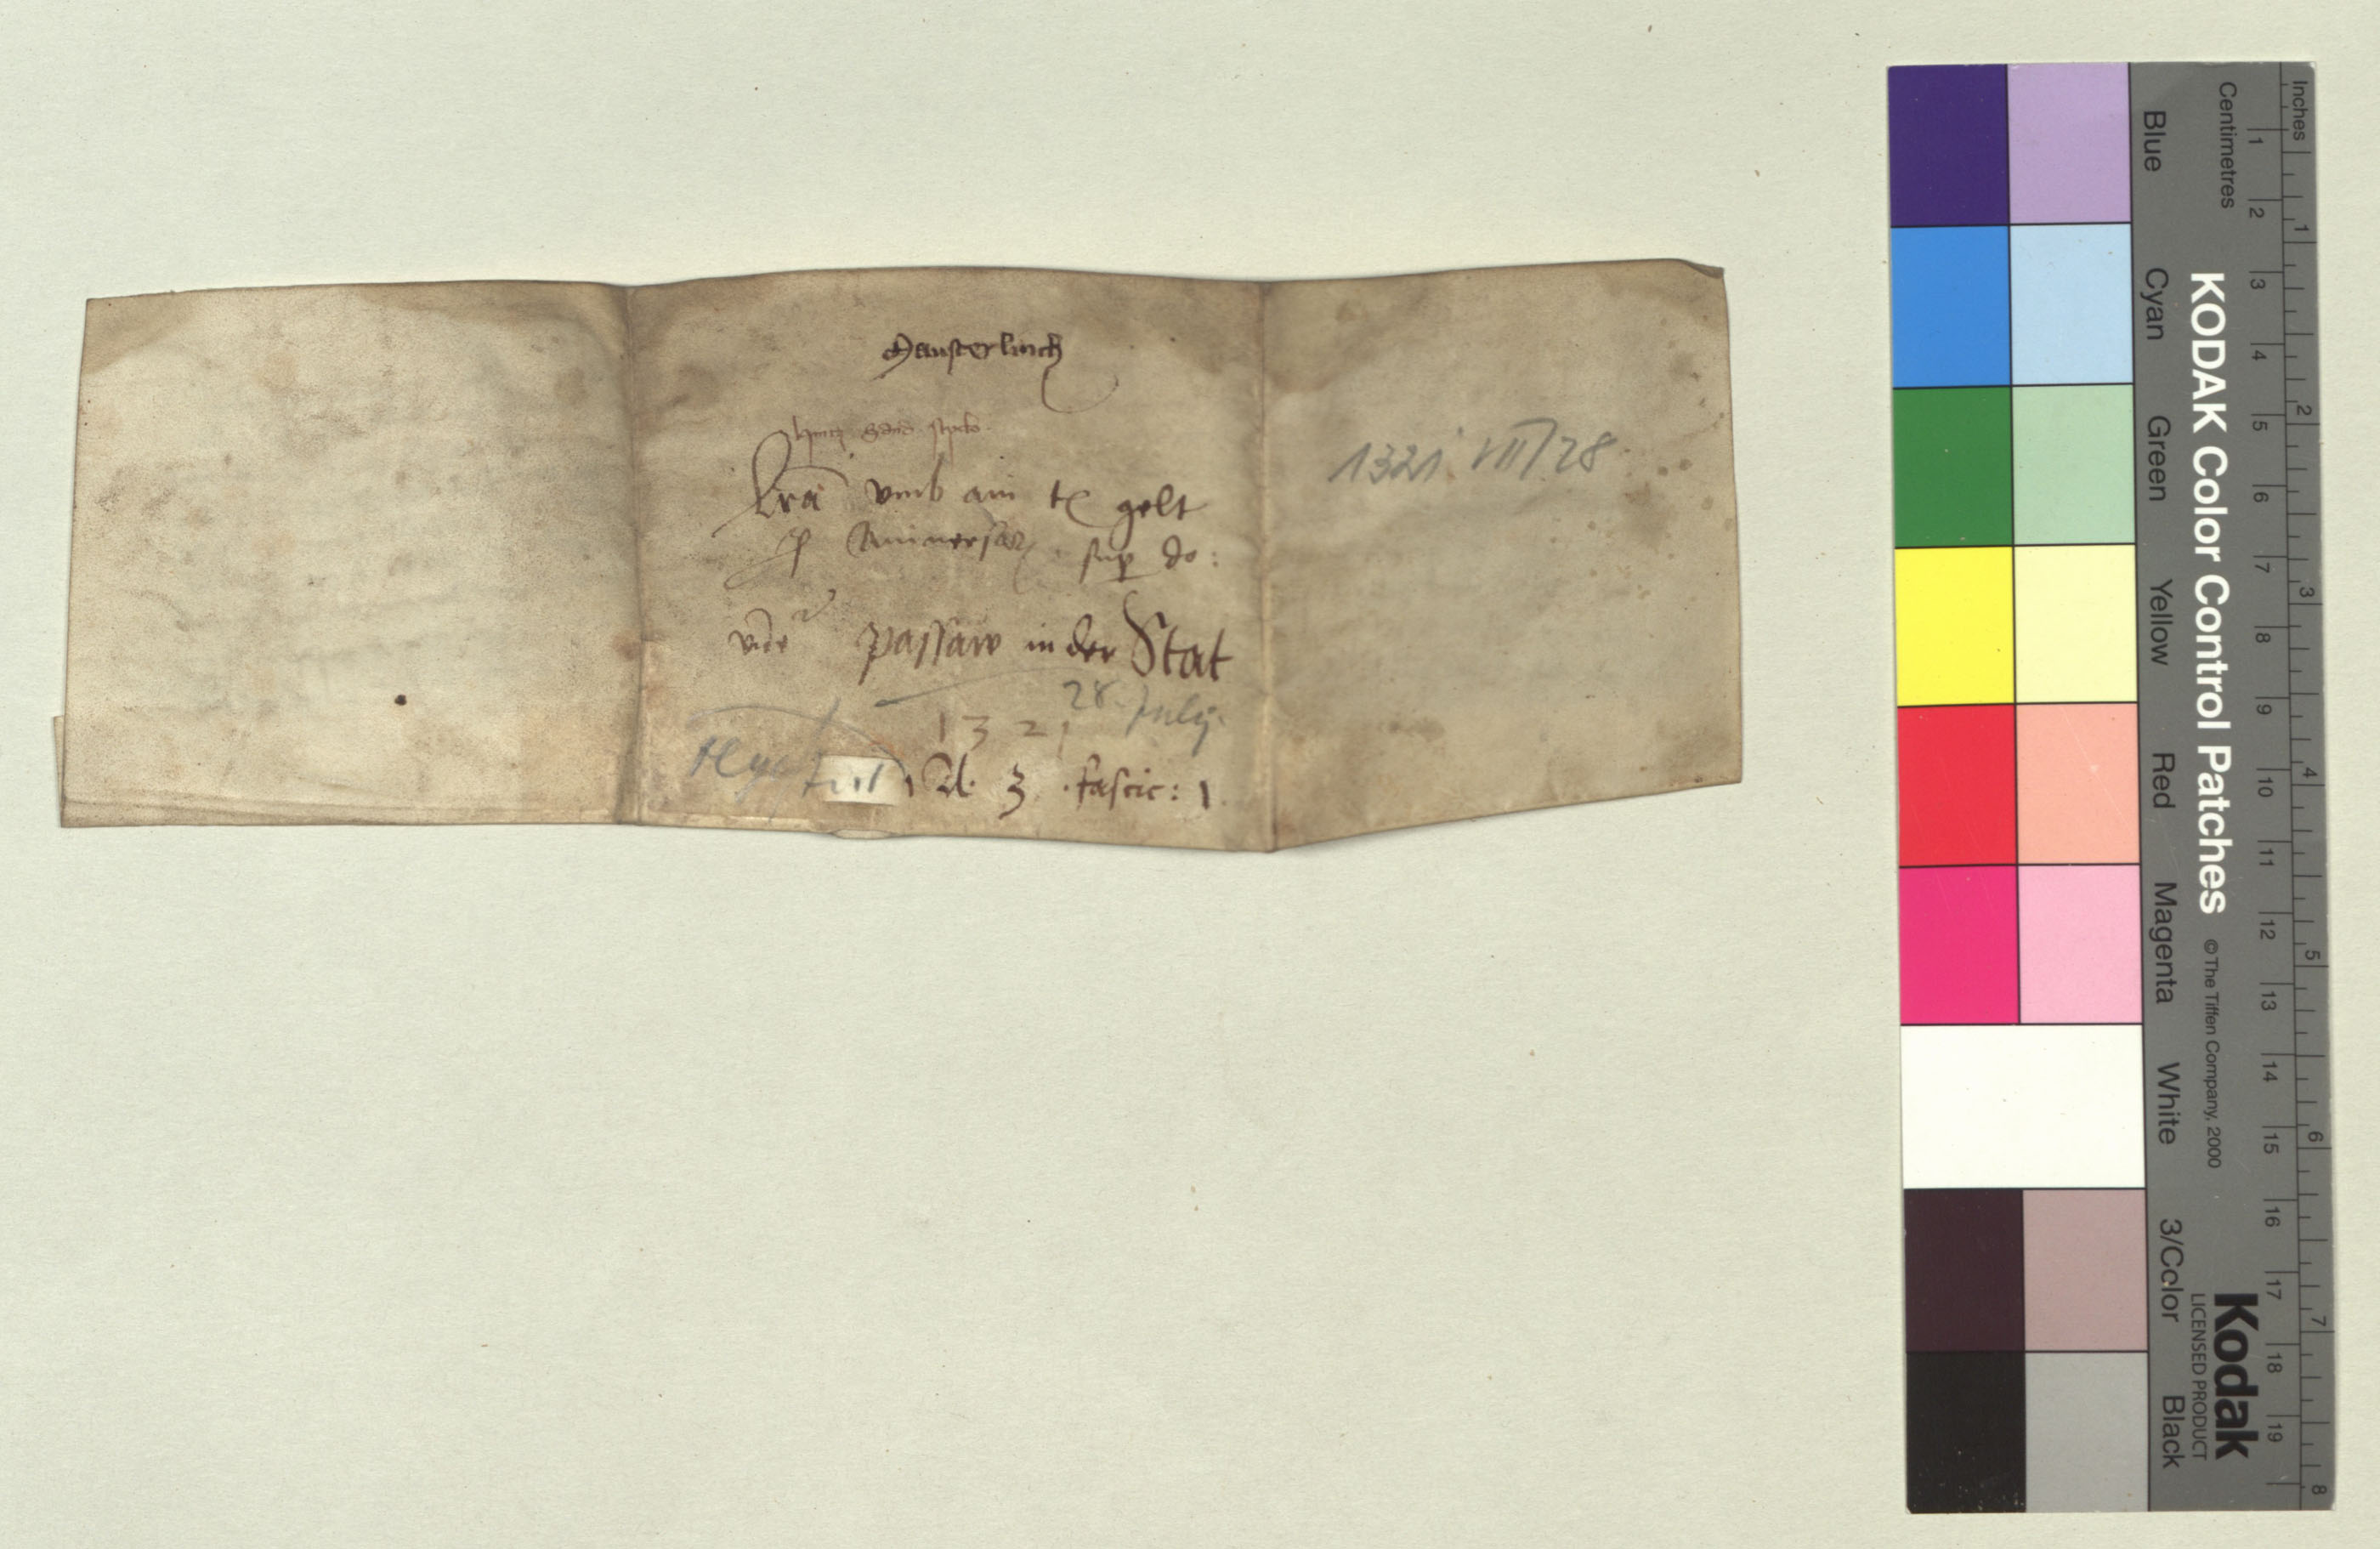 Lra vmb ain tl gelt
Aniuersar sup do:
vide passaw in der Stat
28. July.
1321
N. 3. fascic: 1.
1321 VII/28
Inches
Centimetres
1 2 3 4 5 6 7 8 9 10 11 12 13 14 15 16 17 18 19
1 2 3 4 5 6 7 8
KODAK Color Control Patches © The Tiffen Company, 2000
Kodak
LICENSED PRODUCT
Blue Cyan Green Yellow Red Magenta White 3/Color Black